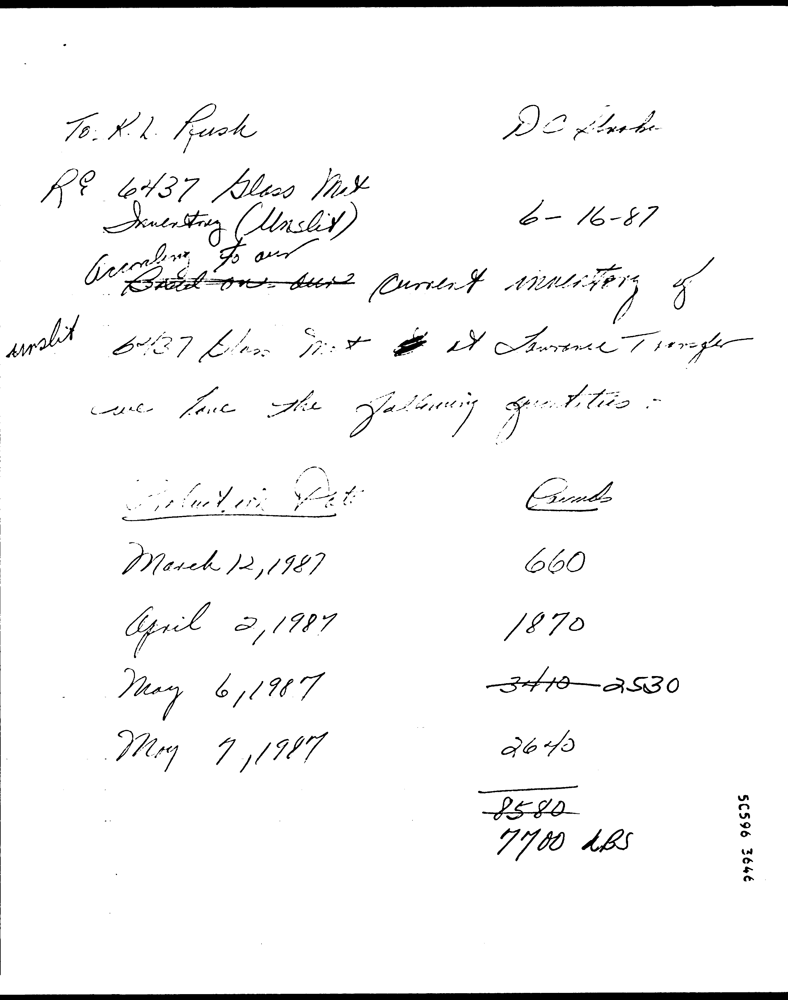 To: K. L. Rush
D C
RE 6437 Glass Mat
Inventory (Unslit)
6-16-87
According to our
Based on our current inventory of
unslit 6437 Glass Mat at Lawrence Transfer
we have the following quantities :-
Production Date Pounds
March 12, 1987 660
April 2, 1987 1870
May 6, 1987 3410 2530
May 7, 1987 2640
8580
7700 LBS
50596 3646